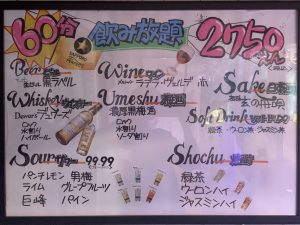 60分 飲み放題 2750
Beer
黒ラベル
Wine
Sake
Whisky
Dewar's
ロック
水割り
ハイボール
Umeshu 梅酒
濃厚黒梅酒
ロック
水割り
ソーダ割り
Soft Drink
緑茶・ウーロン茶・ジャスミン茶
Sour 99.99
パンチレモン 男梅
ライム グレープフルーツ
巨峰 パイン
Shochu
緑茶
ウーロンハイ
ジャスミンハイ